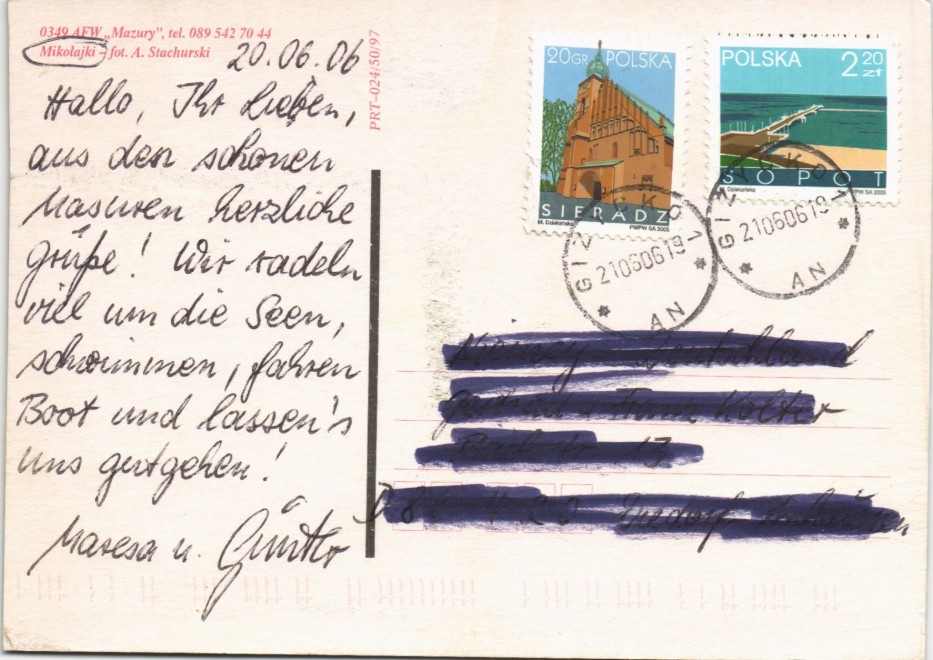 0349 AFW „Mazury”, tel. 089 542 70 44
Mikołajki – fot. A. Stachurski
PRT–024/50/97
20.06.06
Hallo, Ihr Lieben,
aus den schönen
Masuren herzliche
Grüße! Wir radeln
viel um die Seen,
schwimmen, fahren
Boot und lassen's
uns gutgehen!
Maresa u. Günther
20GR POLSKA
SIERADZ
M. Dziekańska PWPW SA 2005
POLSKA 2 20 zł
SOPOT
M. Dziekańska PWPW SA 2005
GIŻYCKO 1
21060619
AN
GIŻYCKO 1
21060619
AN